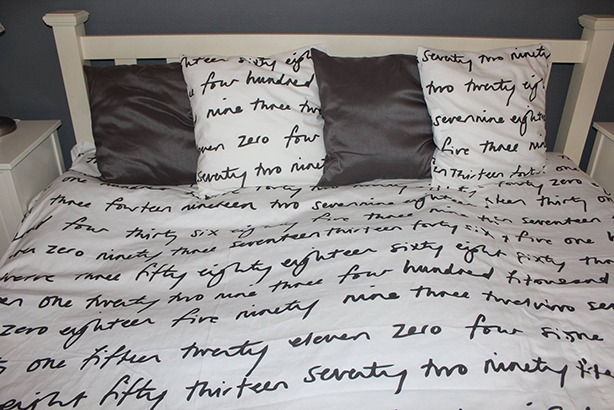 thirteen sixty eigh
four hundred
nine three tw
even zero four
seventy two ninety
seventy two ninety
twenty on
sevennine eighteen
five three nine
three fourteen nineteen two sevennine eighteen thirteen forty zero
four thirty six eighty five three nine thirteen seventeen
zero ninety three seventeen thirteen forty six five one
three fifty eighty eighteen sixty eight sixty
one twenty two nine three four hundred
zero eighteen five ninety nine three
one fifteen twenty eleven zero four
eight fifty thirteen seventy two ninety